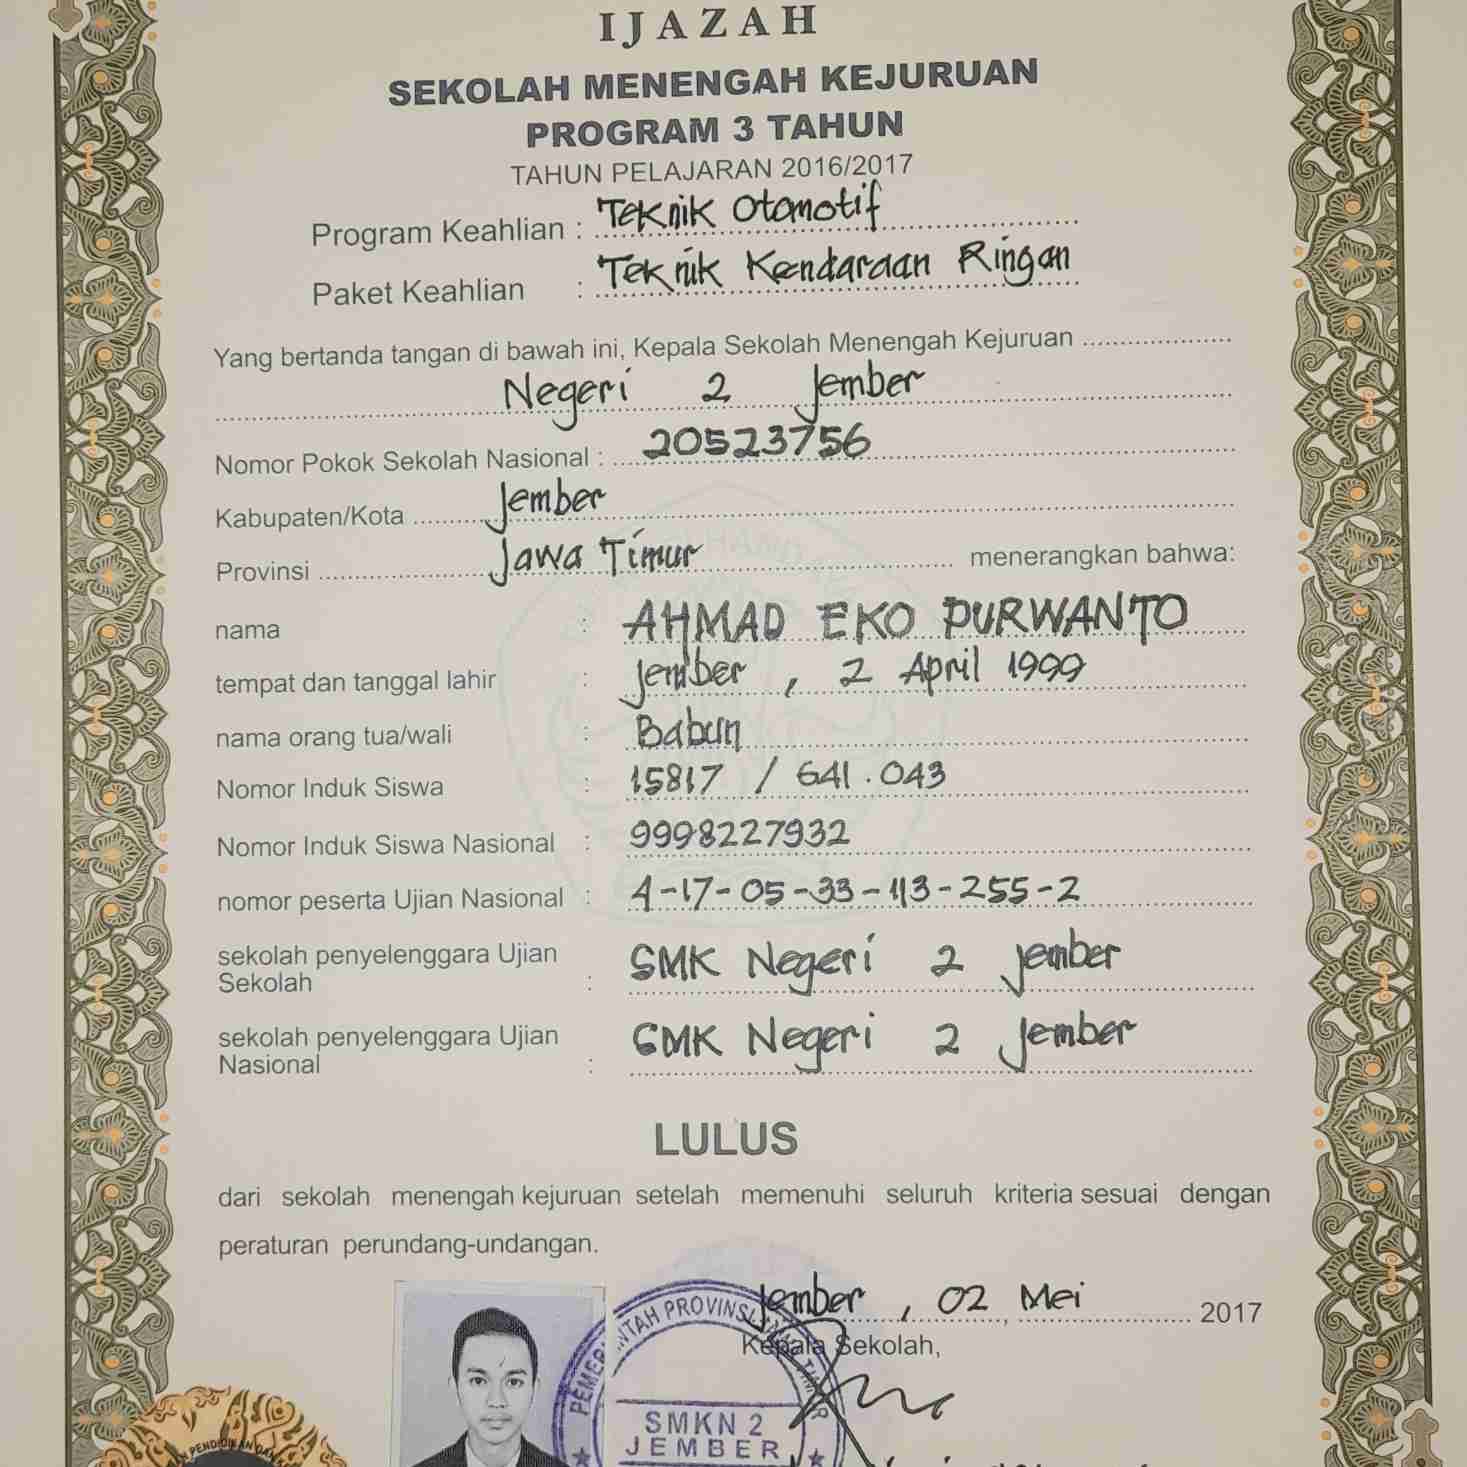 IJAZAH
SEKOLAH MENENGAH KEJURUAN
PROGRAM 3 TAHUN
TAHUN PELAJARAN 2016/2017
Program Keahlian : Teknik Otomotif
Paket Keahlian : Teknik Kendaraan Ringan
Yang bertanda tangan di bawah ini, Kepala Sekolah Menengah Kejuruan
Negeri 2 Jember
Nomor Pokok Sekolah Nasional : 20523756
Kabupaten/Kota Jember
Provinsi Jawa Timur menerangkan bahwa:
nama : AHMAD EKO PURWANTO
tempat dan tanggal lahir : Jember, 2 April 1999
nama orang tua/wali : Babun
Nomor Induk Siswa : 15817 / 641.043
Nomor Induk Siswa Nasional : 9998227932
nomor peserta Ujian Nasional : 4-17-05-33-113-255-2
sekolah penyelenggara Ujian
Sekolah : SMK Negeri 2 Jember
sekolah penyelenggara Ujian
Nasional : SMK Negeri 2 Jember
LULUS
dari sekolah menengah kejuruan setelah memenuhi seluruh kriteria sesuai dengan
peraturan perundang-undangan.
Jember, 02 Mei 2017
Kepala Sekolah,
PEMERINTAH PROVINSI JAWA TIMUR
SMKN 2
JEMBER
PENDIDIKAN DAN